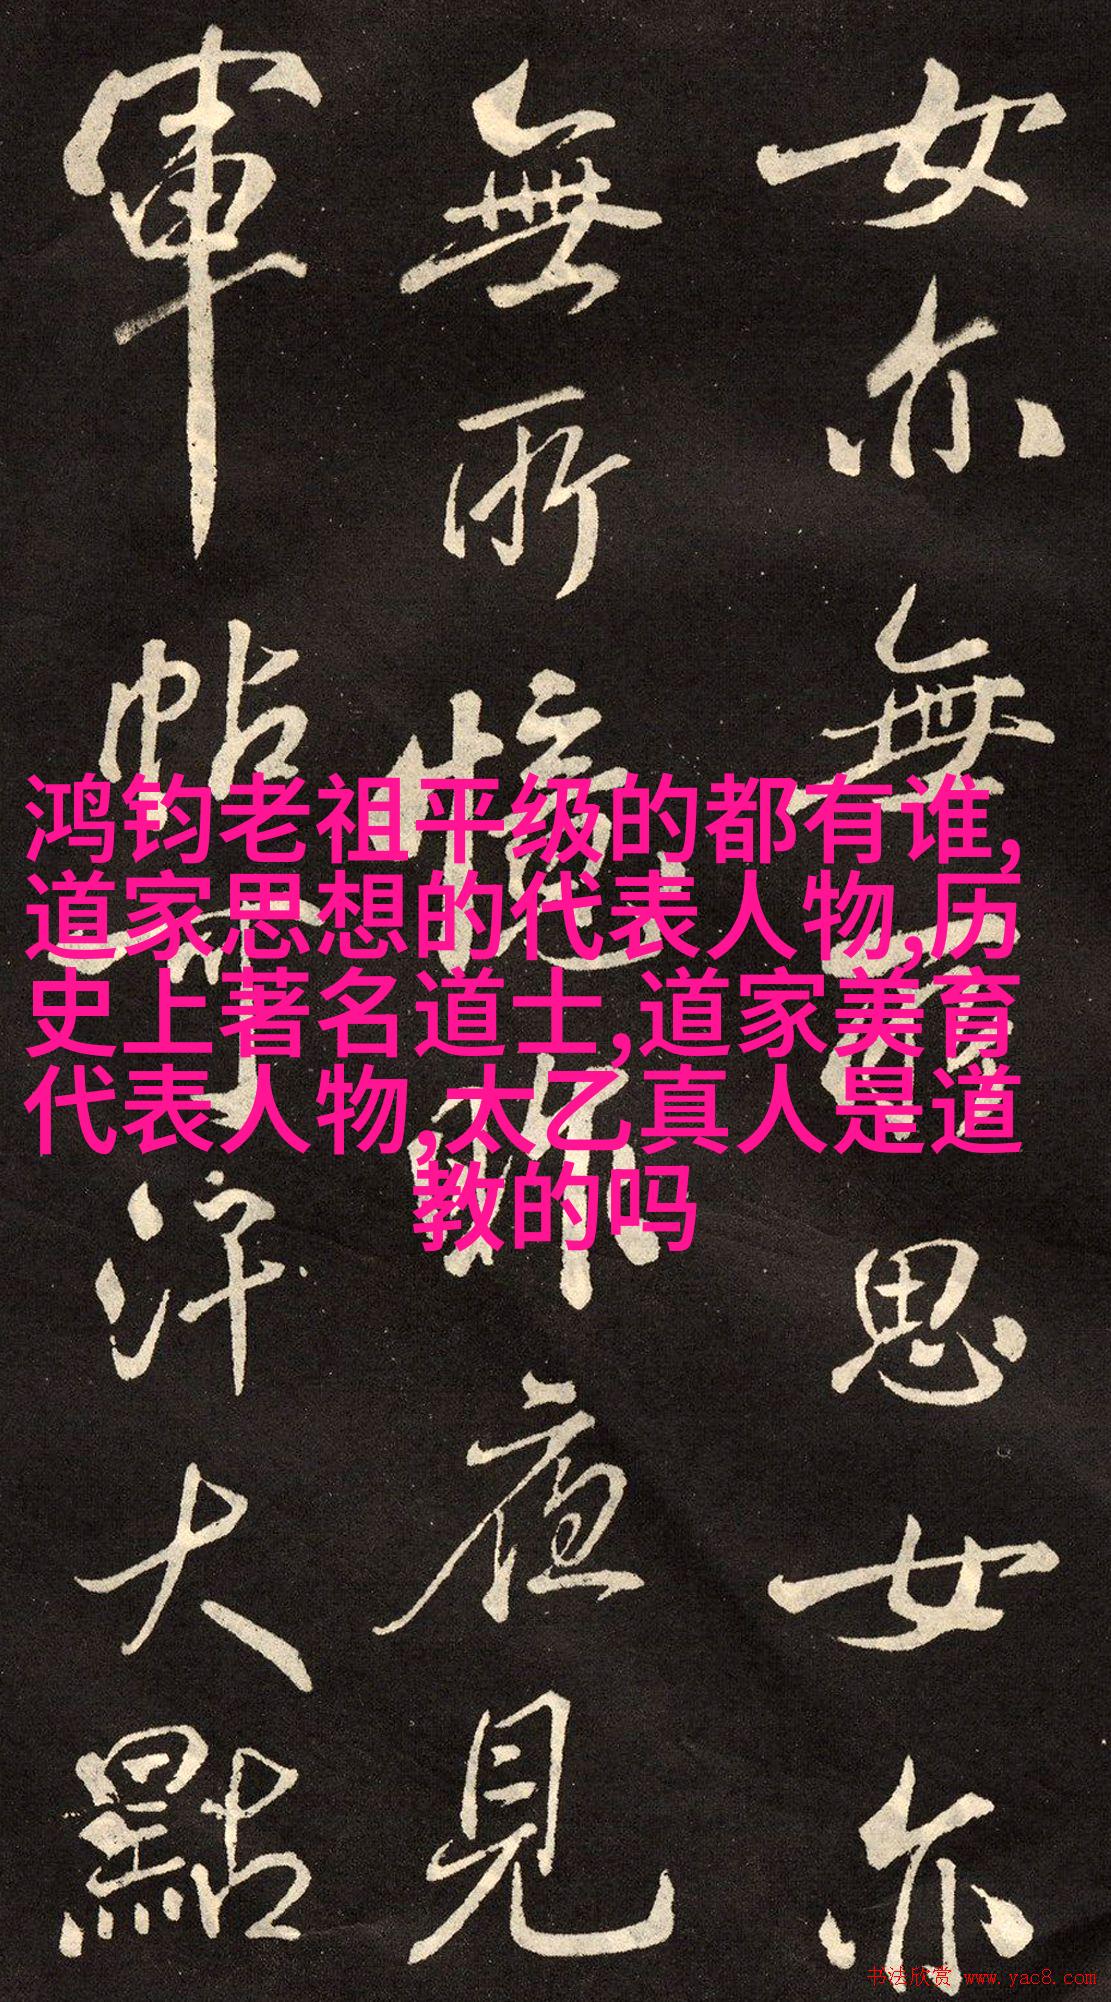 女亦無所思女亦
無所憶昨夜見
軍帖可汗大點
鸿钧老祖平级的都有谁,
道家思想的代表人物,历
史上著名道士,道家美育
代表人物,太乙真人是道
教的吗
书法欣赏 www.yac8.com